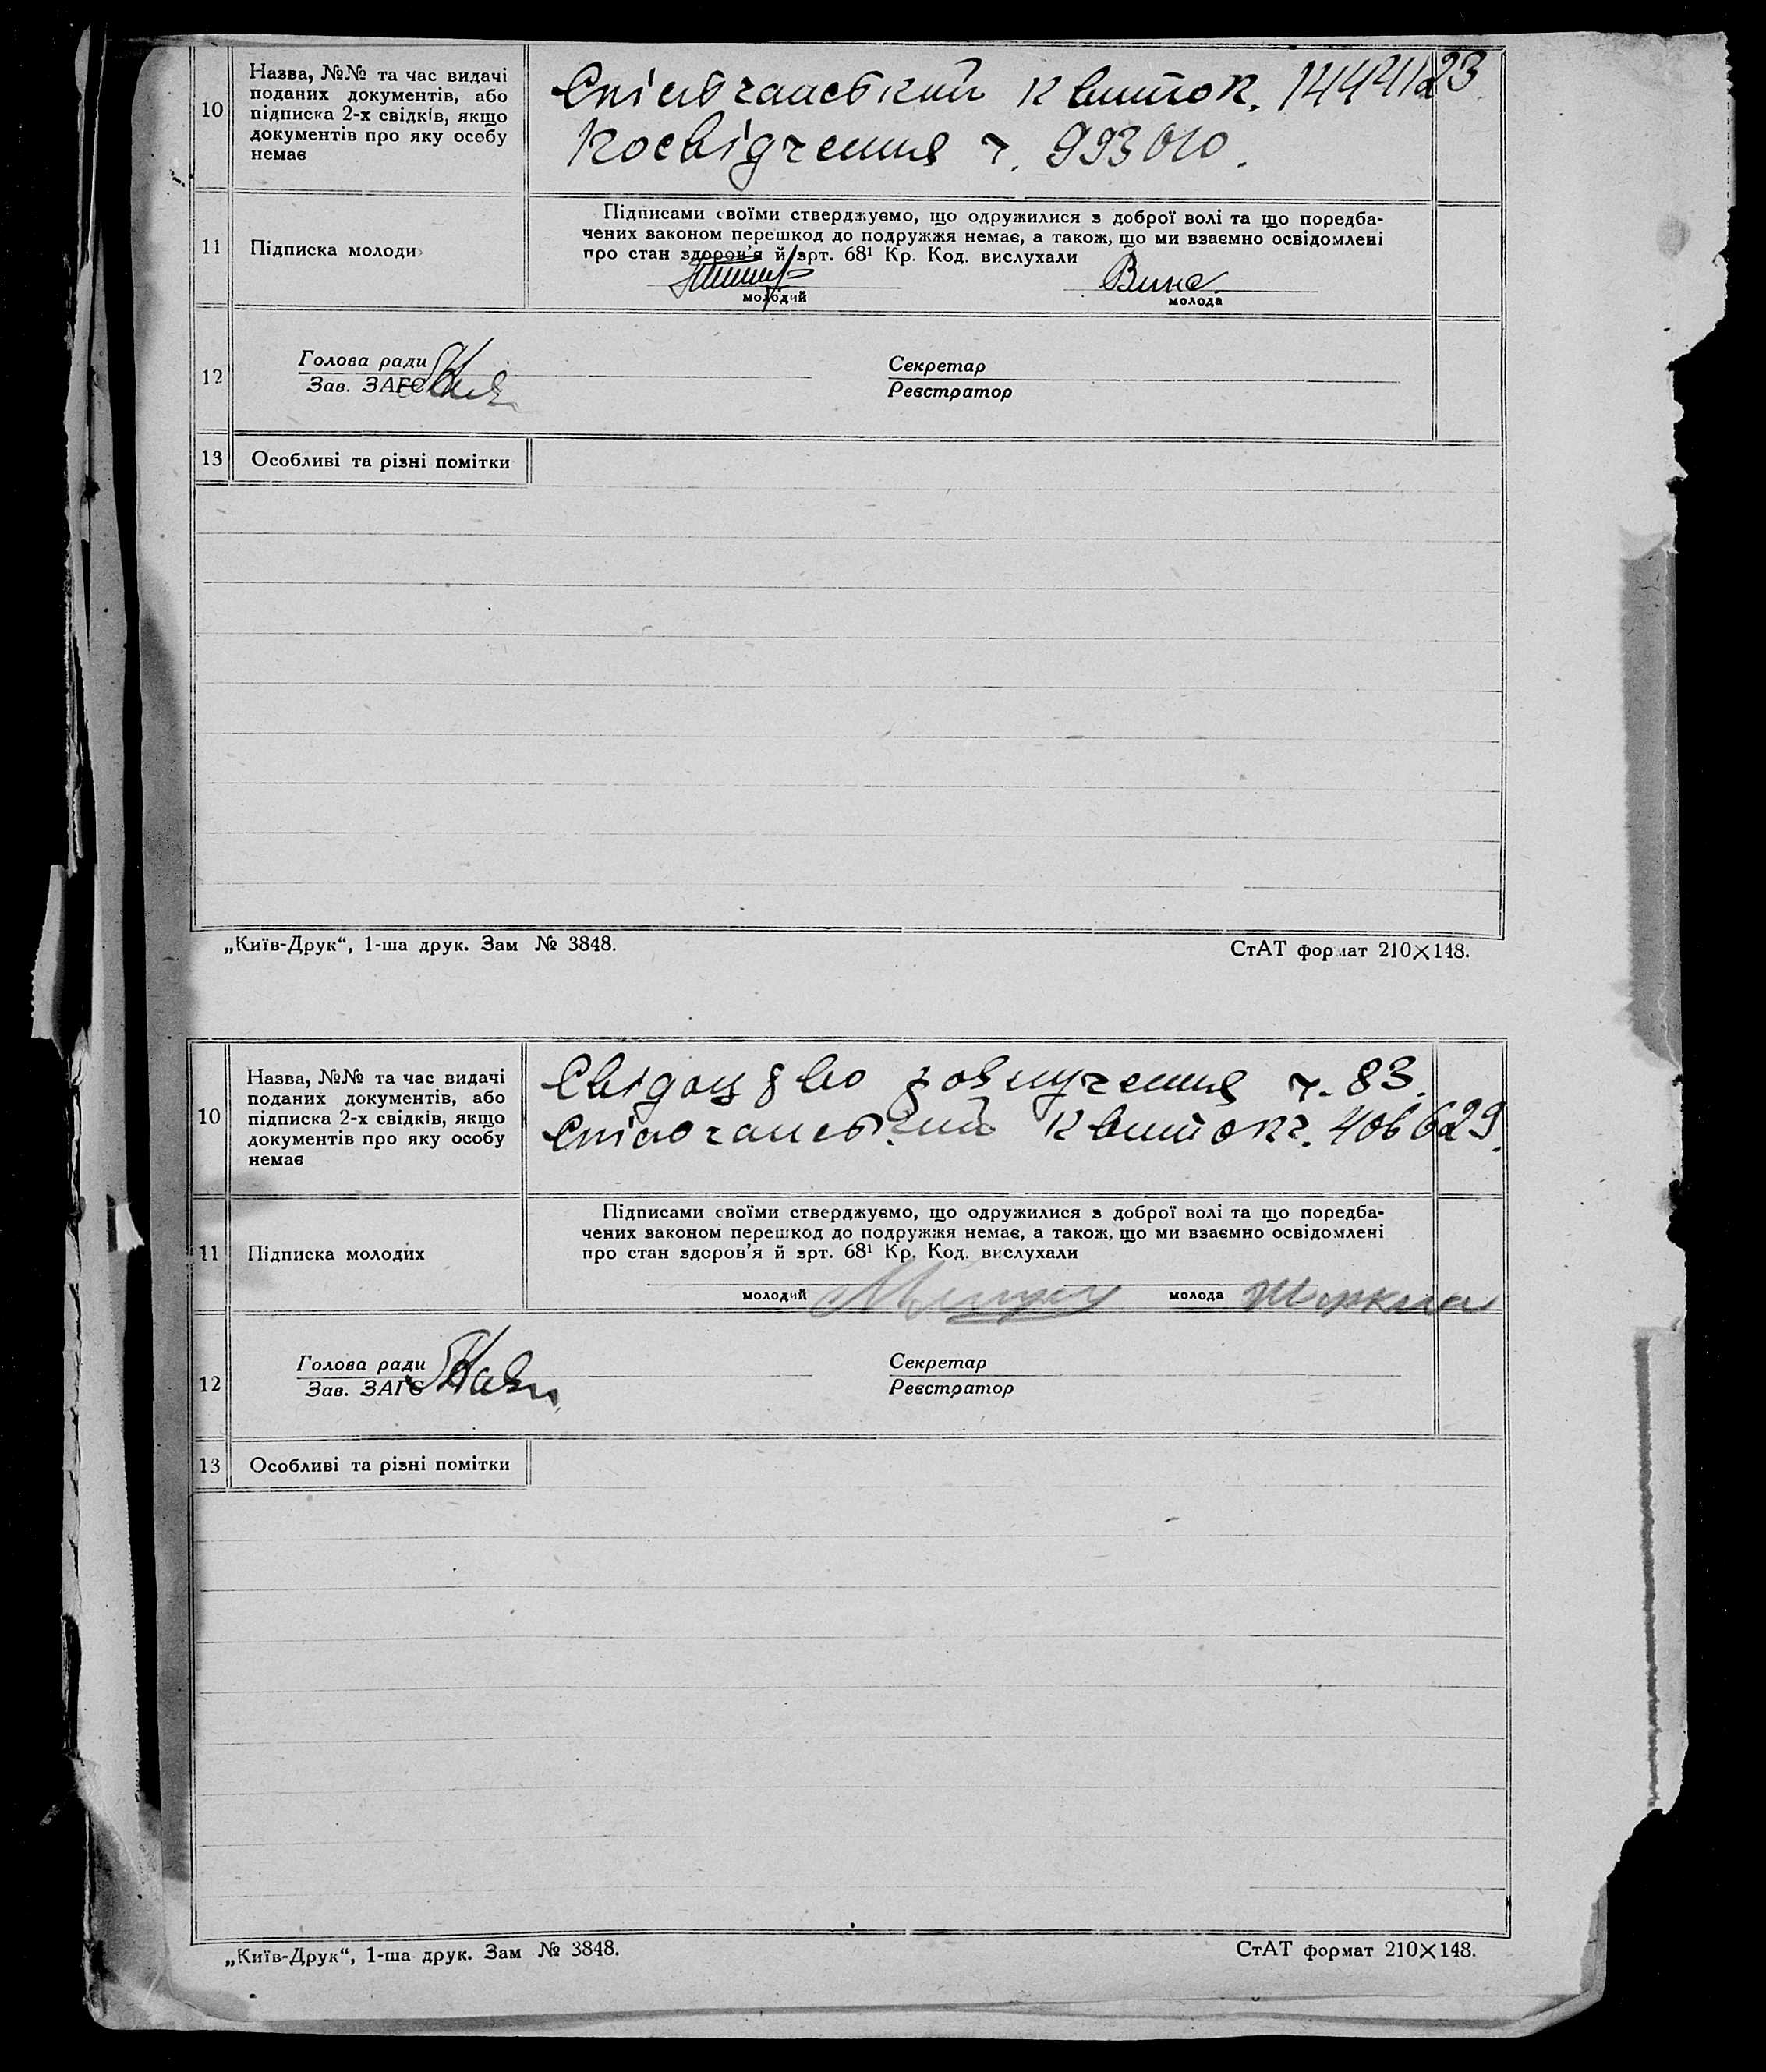 10
Назва, №№ та час видачі
поданих документів, або
підписка 2-х свідків, якщо
документів про яку особу
немає
Спілчанський квиток. 1444123
Посвідчення ч. 993010.
11
Підписка молоди
Підписами своїми стверджуємо, що одружилися з доброї волі та що поредба-
чених законом перешкод до подружжя немає, а також, що ми взаємно освідомлені
про стан здоров'я й арт. 68¹ Кр. Код. вислухали
молодий
молода
12
Голова ради
Зав. ЗАГС
Секретар
Реєстратор
13
Особливі та різні помітки
„Київ-Друк“, 1-ша друк. Зам № 3848.
СтАТ формат 210×148.
10
Назва, №№ та час видачі
поданих документів, або
підписка 2-х свідків, якщо
документів про яку особу
немає
ч. 83.
Спілчанський квиток ч. 406629.
11
Підписка молодих
Підписами своїми стверджуємо, що одружилися з доброї волі та що поредба-
чених законом перешкод до подружжя немає, а також, що ми взаємно освідомлені
про стан здоров'я й арт. 68¹ Кр. Код. вислухали
молодий
молода
12
Голова ради
Зав. ЗАГС
Секретар
Реєстратор
13
Особливі та різні помітки
„Київ-Друк“, 1-ша друк. Зам № 3848.
СтАТ формат 210×148.